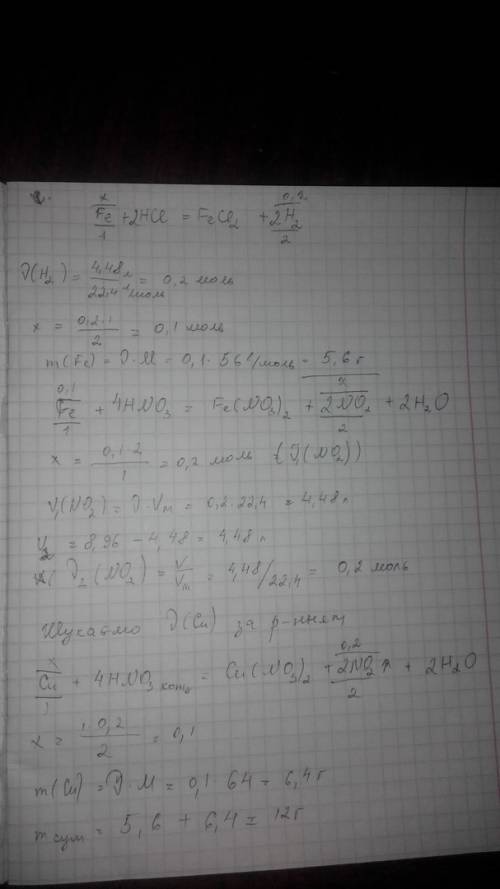 x 0,2
Fe + 2HCl = FeCl2 + 2H2
1 2
ν(H2) = 4,48 л / 22,4 л/моль = 0,2 моль
x = 0,2·1 / 2 = 0,1 моль
m(Fe) = ν·M = 0,1·56 г/моль = 5,6 г
0,1 x
Fe + 4HNO3 = Fe(NO3)2 + 2NO2 + 2H2O
1 2
x = 0,1·2 / 1 = 0,2 моль (ν1(NO2))
V1(NO2) = ν·Vm = 0,2·22,4 = 4,48 л
V2 = 8,96 – 4,48 = 4,48 л
ν2(NO2) = V / Vm = 4,48/22,4 = 0,2 моль
Шукаємо ν(Cu) за р-нням
x 0,2
Cu + 4HNO3 конц = Cu(NO3)2 + 2NO2 + 2H2O
1 2
x = 1·0,2 / 2 = 0,1
m(Cu) = ν·M = 0,1·64 = 6,4 г
m сум = 5,6 + 6,4 = 12 г